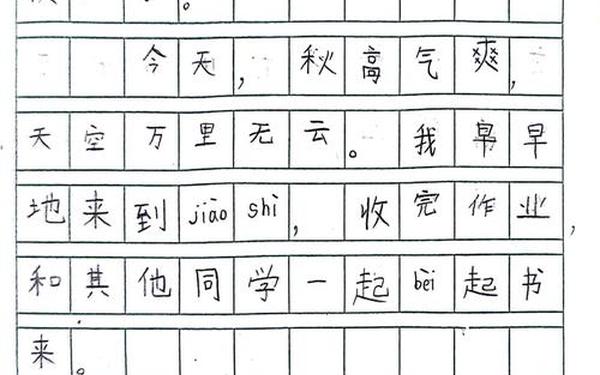 。
今天，秋高气爽，
天空万里无云。我帛早
地来到jiào shì，收完作业，
和其他同学一起bèi起书
来。